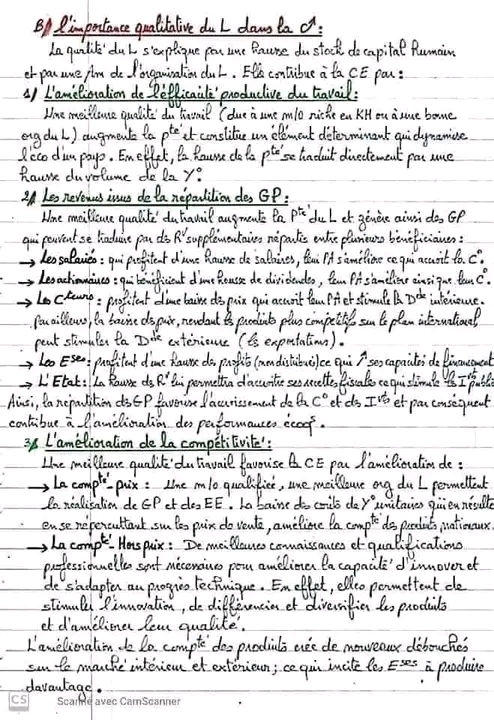 B/ L'importance qualitative du L dans la C↗ :
La qualité du L s'explique par une hausse du stock de capital humain
et par une Am de l'organisation du L. Elle contribue à la CE par :
1/ L'amélioration de l'efficacité productive du travail :
Une meilleure qualité du travail (due à une m/o riche en KH ou à une bonne
org du L) augmente la pté et constitue un élément déterminant qui dynamise
l'éco d'un pays. En effet, la hausse de la pté se traduit directement par une
hausse du volume de la Y°
2/ Les revenus issus de la répartition des GP :
Une meilleure qualité du travail augmente la Pté du L et génère ainsi des GP
qui peuvent se traduire par des R supplémentaires répartis entre plusieurs bénéficiaires :
→ Les salariés : qui profitent d'une hausse de salaires, leur PA s'améliore ce qui accroit la C°.
→ Les actionnaires : qui bénéficient d'une hausse de dividendes, leur PA s'améliore ainsi que leur C°.
→ Les Cteurs : profitent d'une baisse des prix qui accroit leur PA et stimule la Dde intérieure.
Par ailleurs, la baisse des prix, rendant les produits plus compétitifs sur le plan international
peut stimuler la Dde extérieure (les exportations).
→ Les Eses : profitent d'une hausse de profits (non distribués) ce qui ↗ ses capacités de financement
→ L'Etat : la hausse de R lui permettra d'accroitre ses recettes fiscales ce qui stimule les Ivts publi
Ainsi, la répartition des GP favorise l'accroissement de la C° et des Ivts et par conséquent
contribue à l'amélioration des performances écoqs.
3/ L'amélioration de la compétitivité :
Une meilleure qualité du travail favorise la CE par l'amélioration de :
→ La compté-prix : Une m/o qualifiée, une meilleure org du L permettent
la réalisation de GP et des EE. La baisse des coûts de Y° unitaires qui en résulte
en se répercutant sur les prix de vente, améliore la compté des produits nationaux.
→ La compté-Hors prix : De meilleures connaissances et qualifications
professionnelles sont nécessaires pour améliorer la capacité d'innover et
de s'adapter au progrès technique. En effet, elles permettent de
stimuler l'innovation, de différencier et diversifier les produits
et d'améliorer leur qualité.
L'amélioration de la compté des produits crée de nouveaux débouchés
sur le marché intérieur et extérieur ; ce qui incite les Eses à produire
davantage.
CS Scanné avec CamScanner